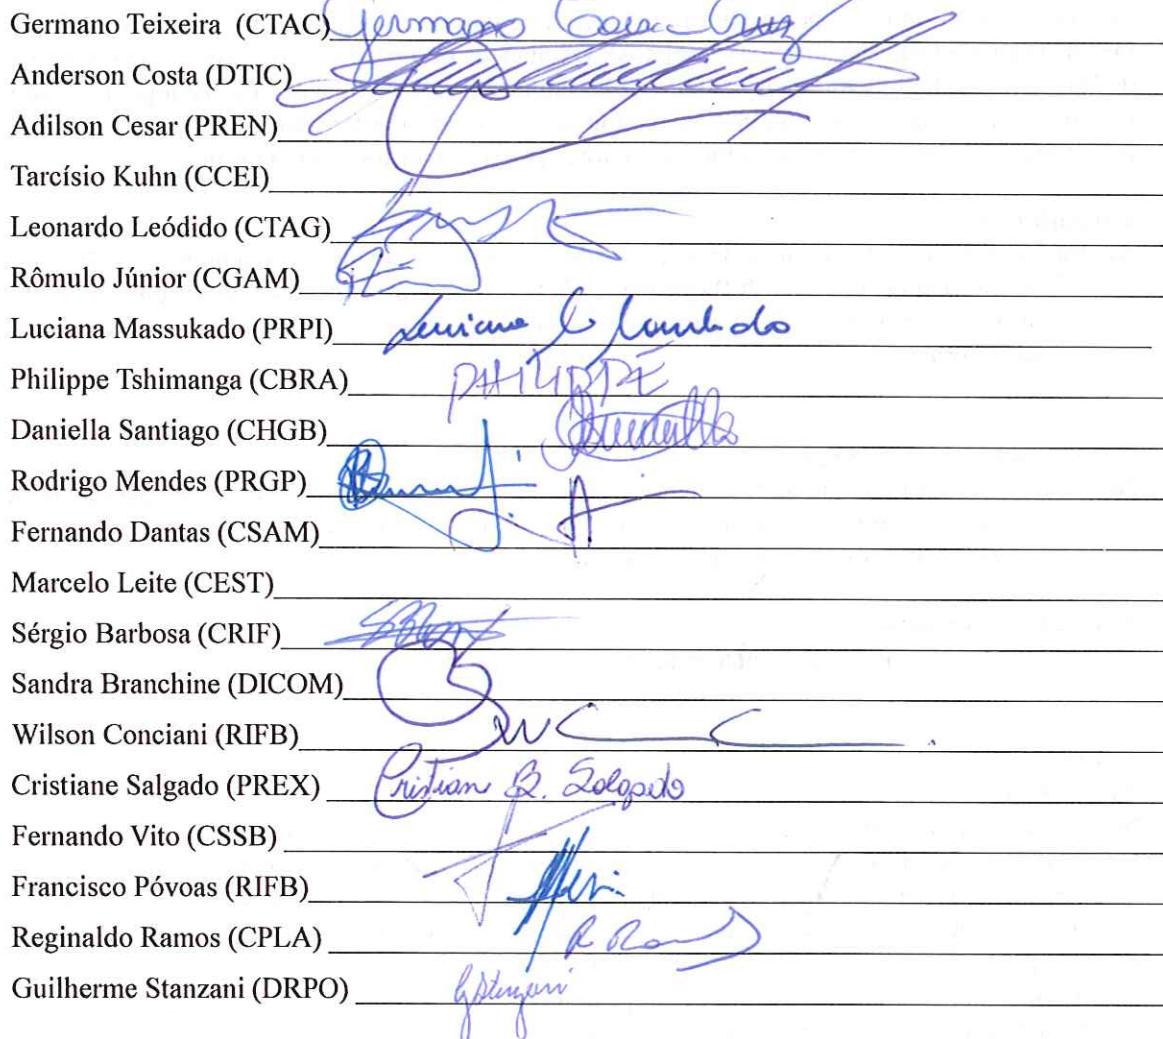 Germano Teixeira (CTAC) Germano Cruz
Anderson Costa (DTIC)
Adilson Cesar (PREN)
Tarcísio Kuhn (CCEI)
Leonardo Leódido (CTAG)
Rômulo Júnior (CGAM)
Luciana Massukado (PRPI)
Philippe Tshimanga (CBRA) PHILIPPE
Daniella Santiago (CHGB)
Rodrigo Mendes (PRGP)
Fernando Dantas (CSAM)
Marcelo Leite (CEST)
Sérgio Barbosa (CRIF)
Sandra Branchine (DICOM)
Wilson Conciani (RIFB)
Cristiane Salgado (PREX) Cristiane B. Salgado
Fernando Vito (CSSB)
Francisco Póvoas (RIFB)
Reginaldo Ramos (CPLA)
Guilherme Stanzani (DRPO) GStanzani